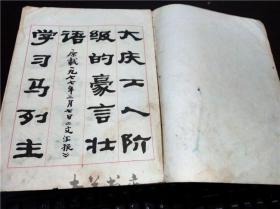 大庆工人阶
级的豪言壮
语
原载一九七七年三月七日《文汇报》
学习马列主